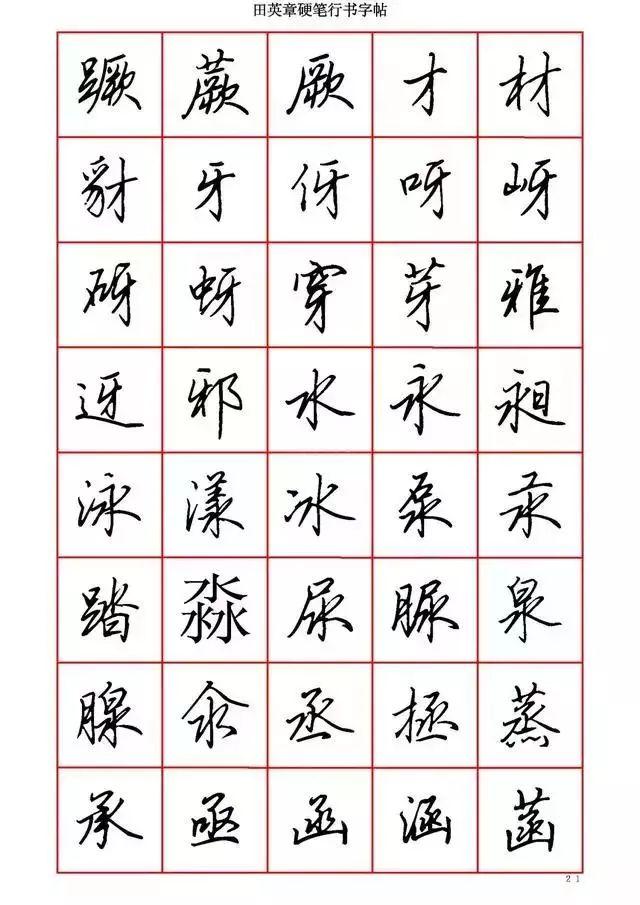 田英章硬笔行书字帖
蹶 蕨 厥 才 材
豺 牙 伢 呀 岈
砑 蚜 穿 芽 雅
迓 邪 水 永 昶
泳 漾 冰 泵 汞
踏 淼 尿 脲 泉
腺 氽 丞 拯 蒸
承 亟 函 涵 菡
21